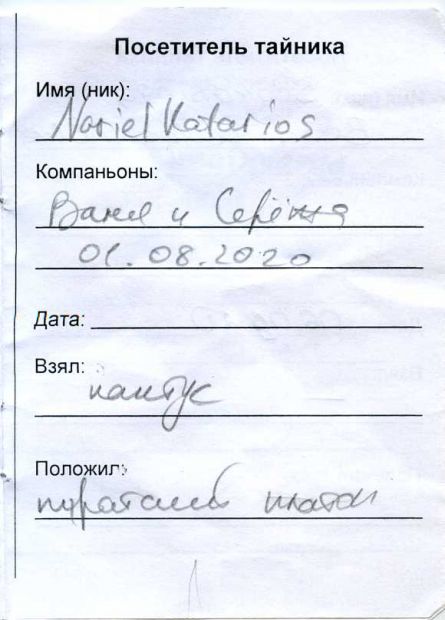 Посетитель тайника
Имя (ник):
Noriel Katarios
Компаньоны:
Ваня и Серёжа
01.08.2020
Дата:
Взял:
кактус
Положил:
пиратский платок